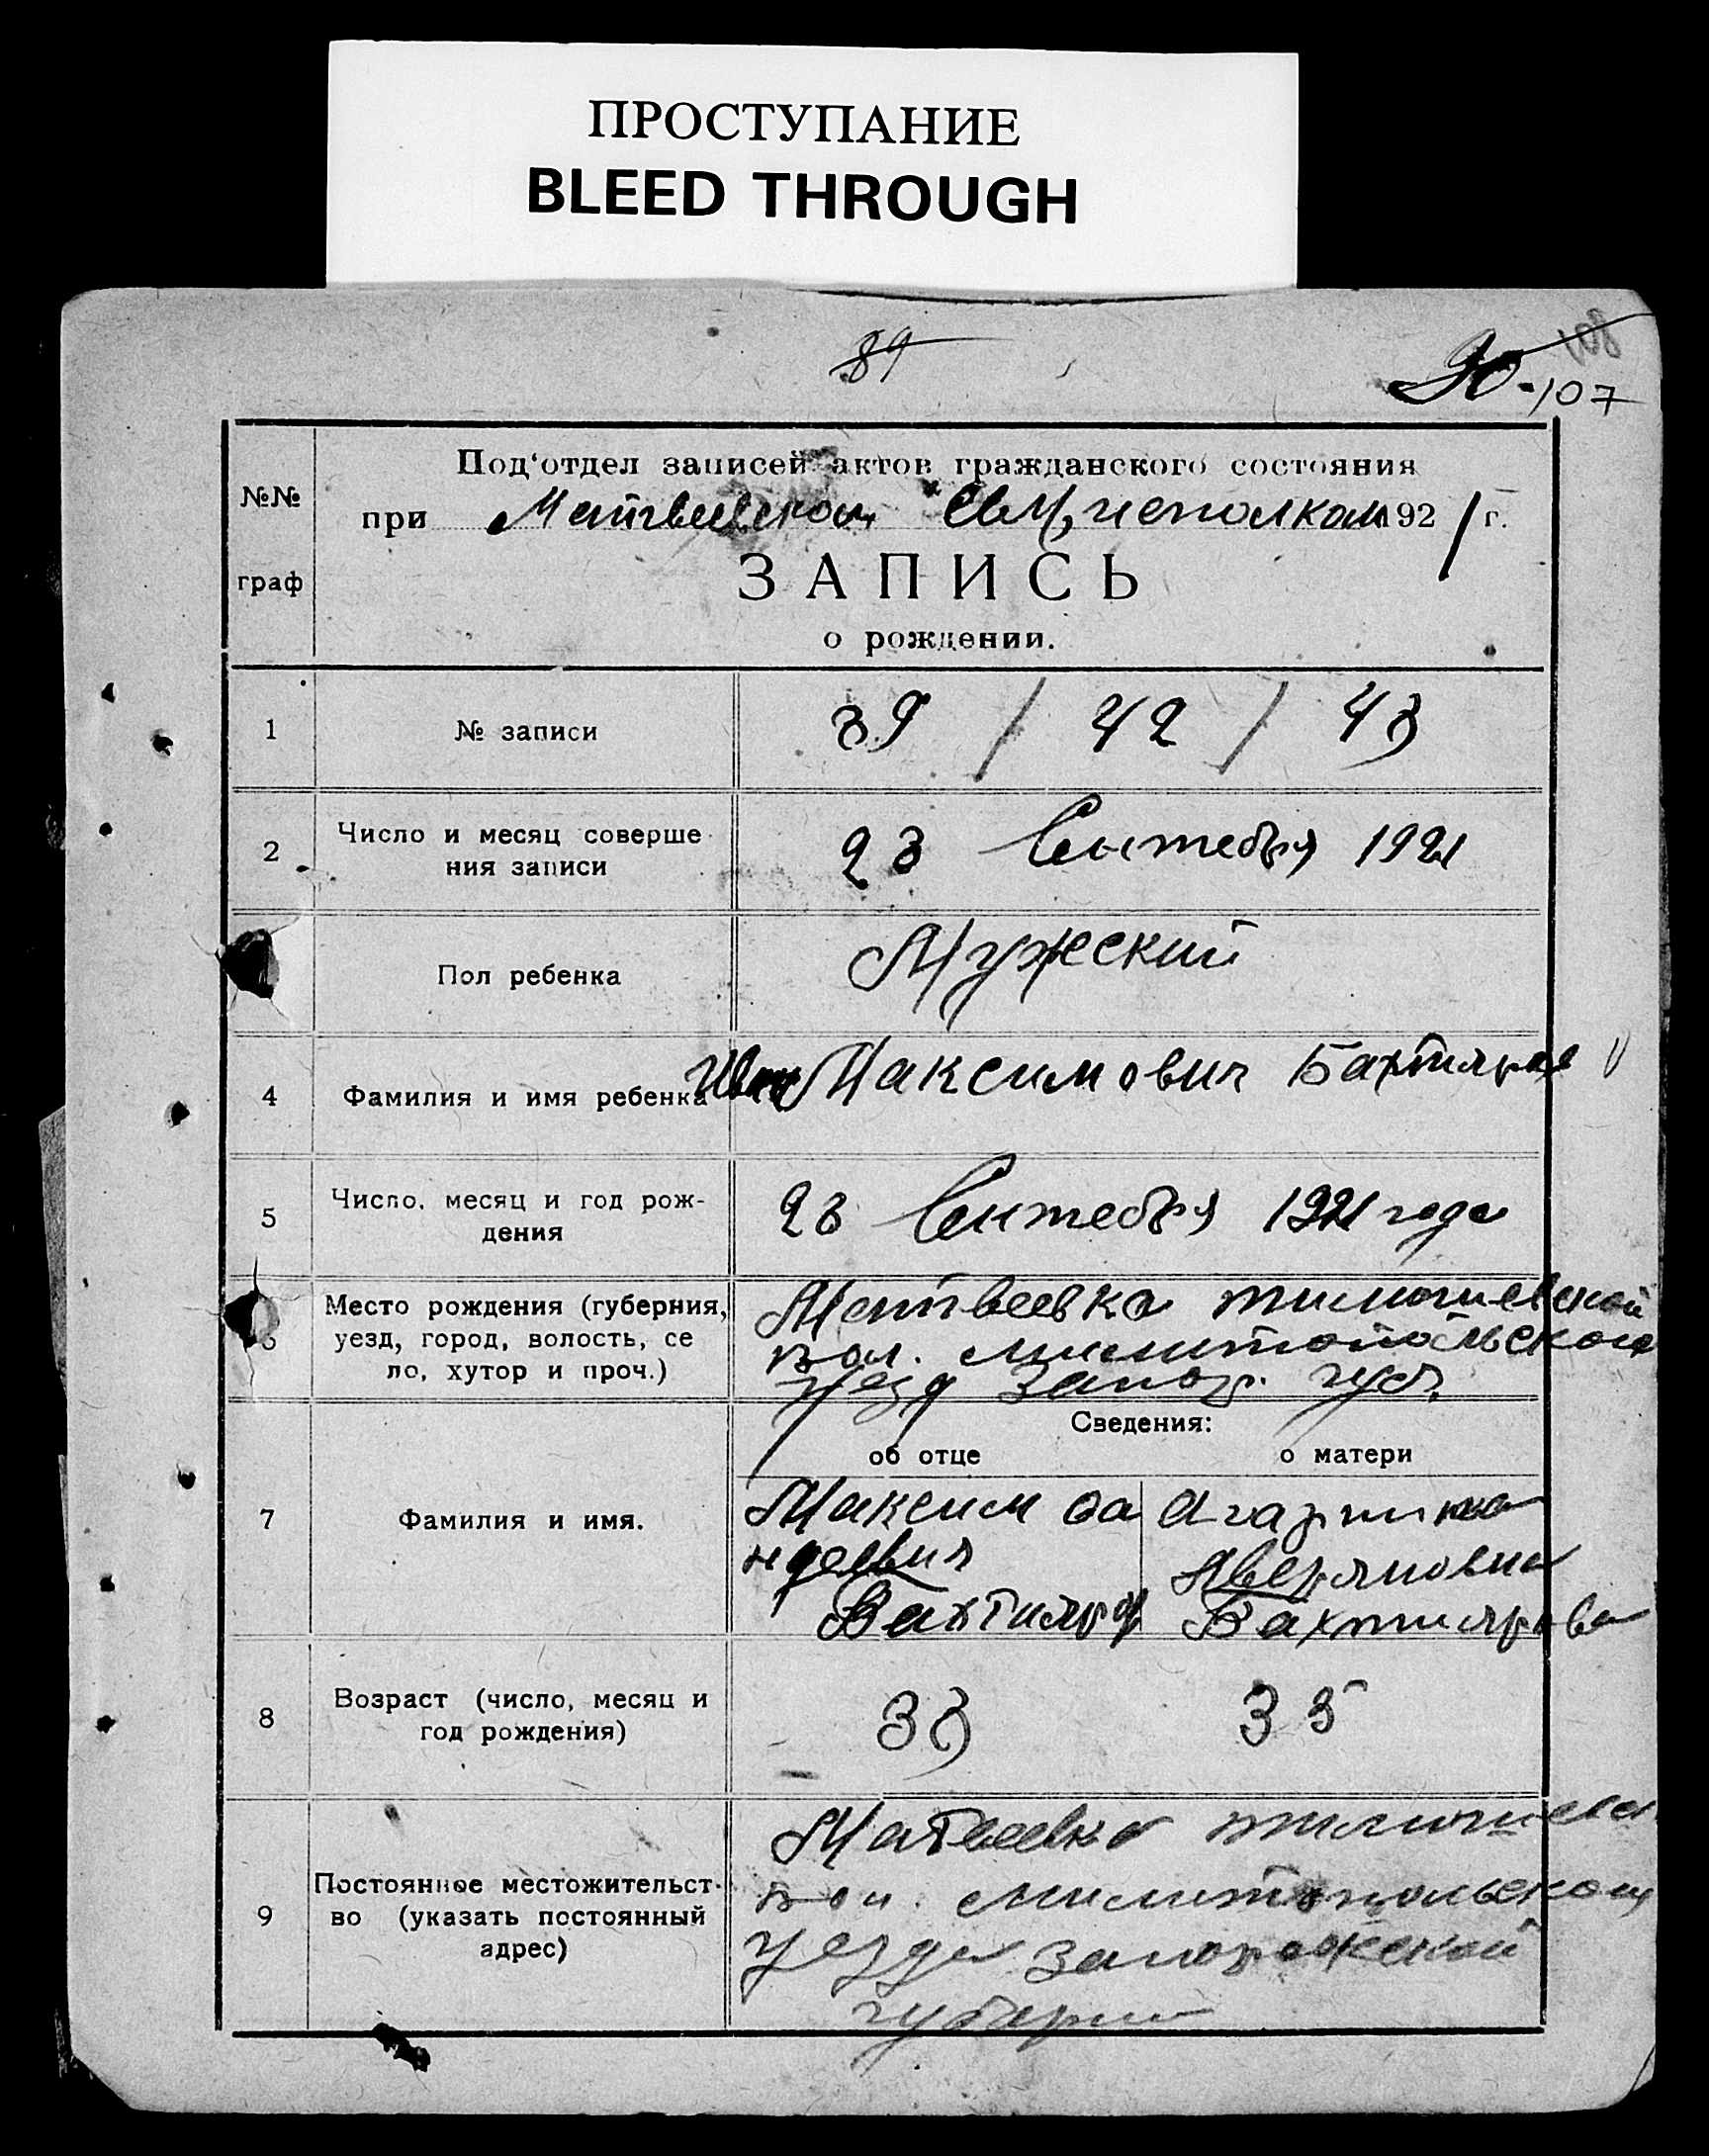 ПРОСТУПАНИЕ
BLEED THROUGH
89
90-107
№№
граф
Под‘отдел записей актов гражданского состояния
при Матвеевском исполкам 1921 г.
ЗАПИСЬ
о рождении.
1 № записи 39 / 42 / 43
2 Число и месяц соверше
ния записи
23 Сентебря 1921
Пол ребенка Мужеский
4 Фамилия и имя ребенка Иван Максимович Бахтияров
5 Число, месяц и год рож-
дения
23 Сентебря 1921 года
6 Место рождения (губерния,
уезд, город, волость, се
ло, хутор и проч.)
Матвеевка
вол. милитопольского
уезд Запор. губ.
Сведения:
об отце о матери
7 Фамилия и имя.
Максим
Бахтияров
Аверяновна
Бахтиярова
8 Возраст (число, месяц и
год рождения)
33 35
9 Постоянное местожительст-
во (указать постоянный
адрес)
Матвеевка
вол. милитопольского
уезда запорожской
губерни